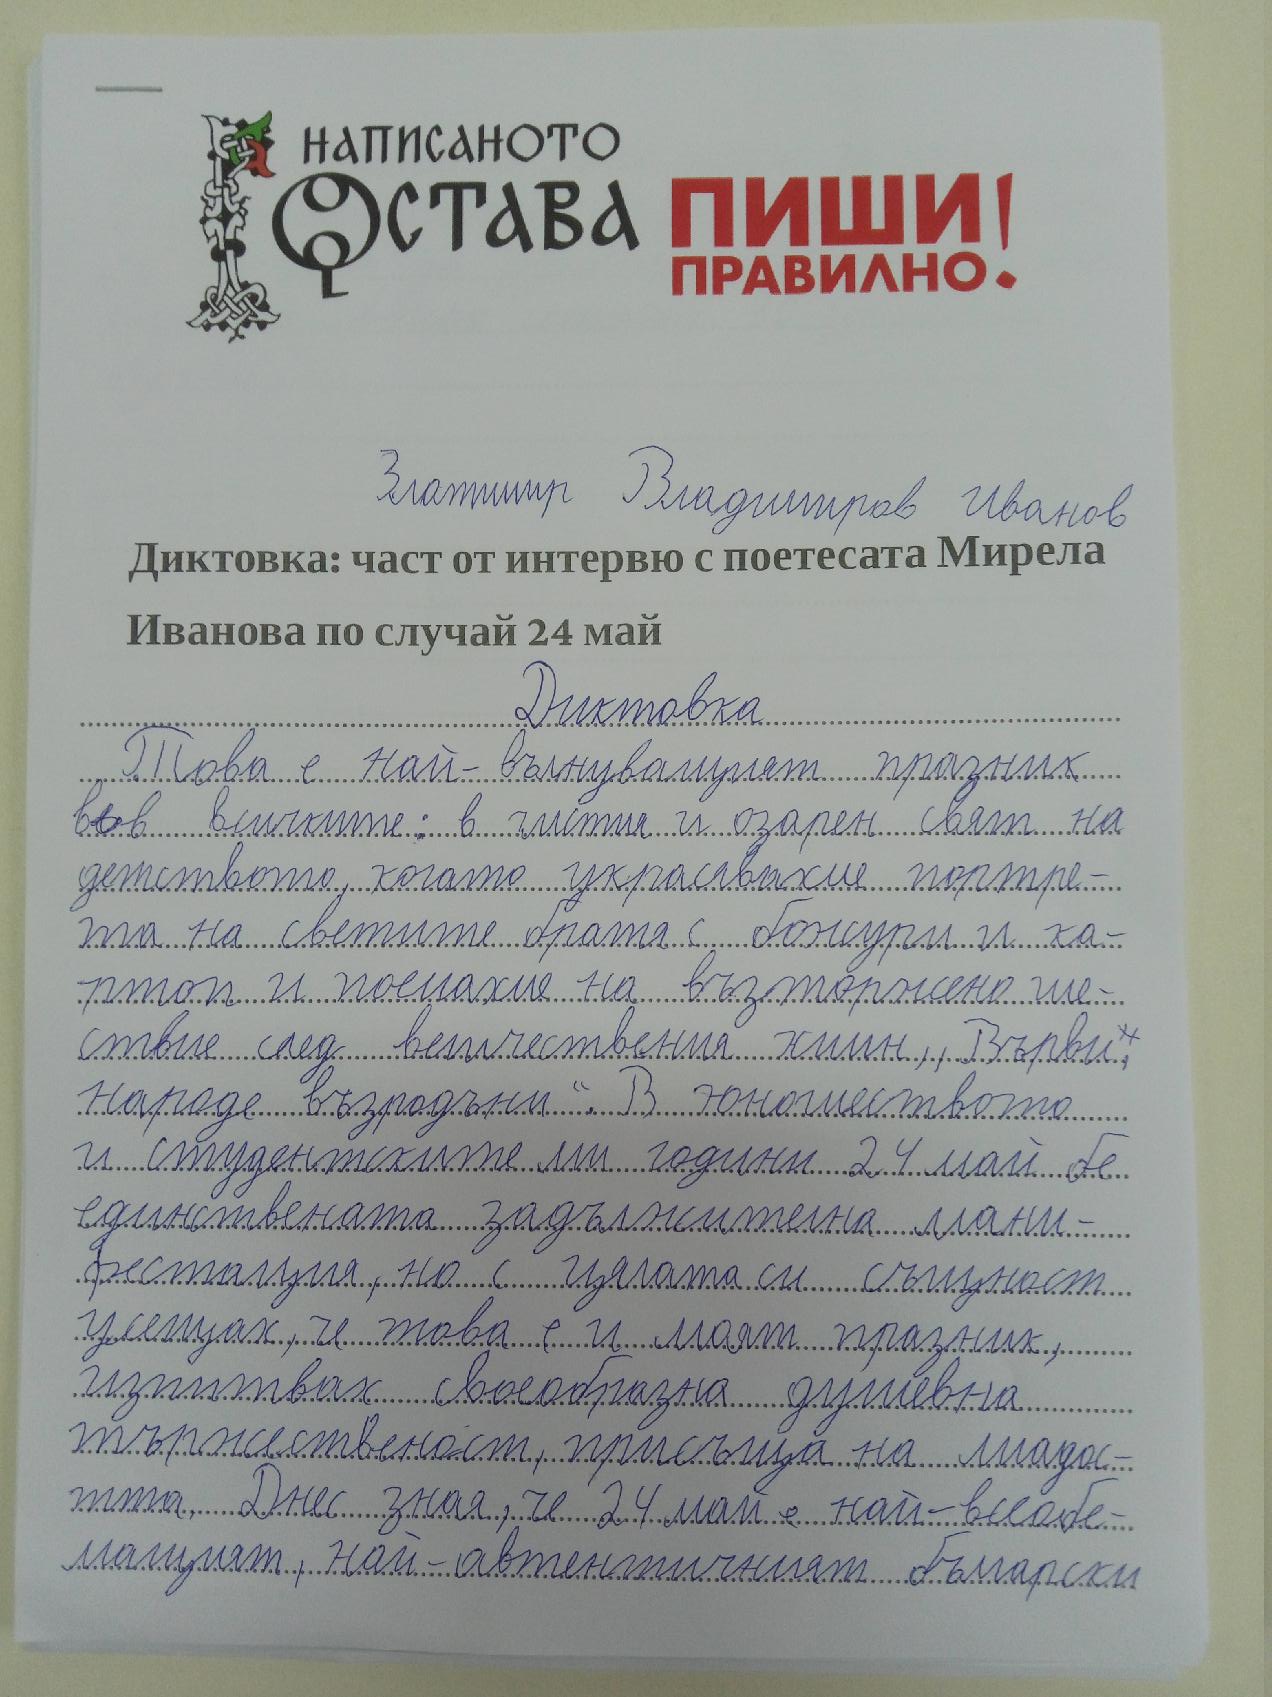 НАПИСАНОТО
ОСТАВА
ПИШИ
ПРАВИЛНО!
Златимир Владимиров Иванов
Диктовка: част от интервю с поетесата Мирела
Иванова по случай 24 май
Диктовка
Това е най-вълнуващият празник
във всичките: в чистия и озарен свят на
детството, когато украсявахме портре-
та на светите братя с божури и ка-
ртоп и поемахме на възторжено ше-
ствие след величествения химн „Върви,
народе възродъни“. В юношеството
и студентските ми години 24 май бе
единствената задължителна мани-
фестация, но с цялата си същност
усещах, че това е и моят празник,
изпитвах своеобразна душевна
тържественост, присъща на младос-
тта. Днес зная, че 24 май е най-всеобе-
мащият, най-автентичният български